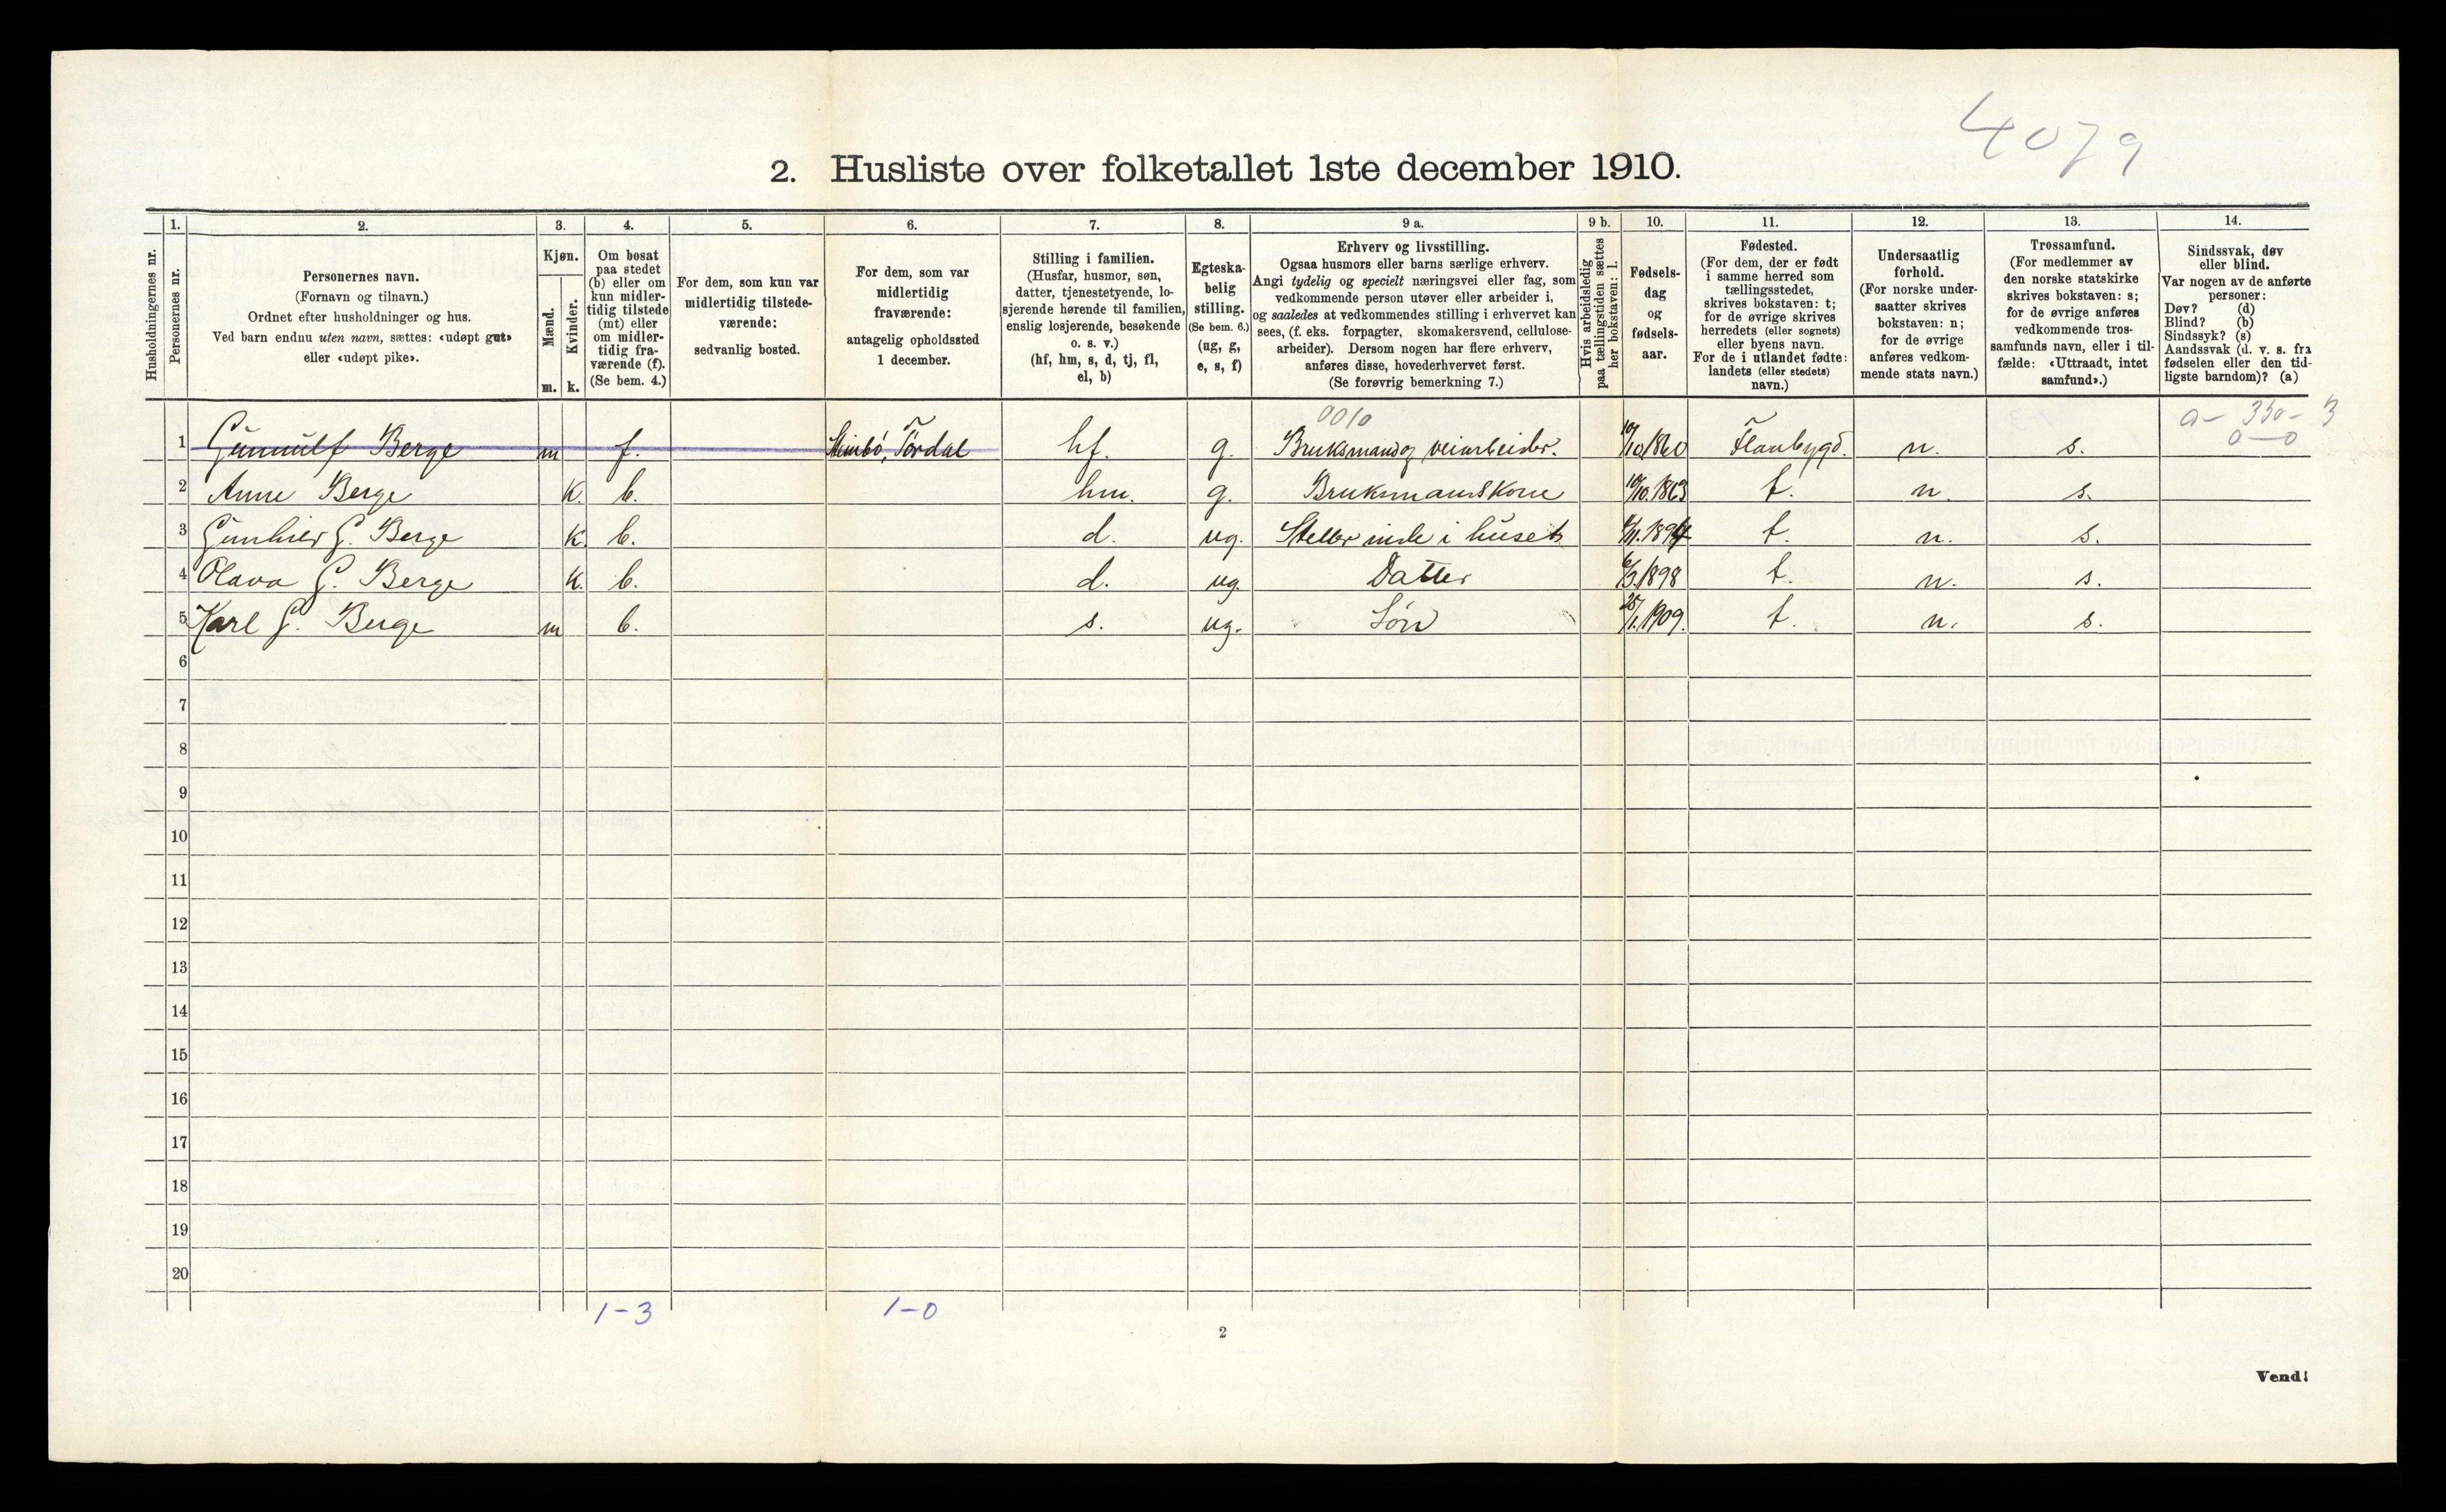 4079
2. Husliste over folketallet 1ste december 1910.
Husholdningernes nr.
1.
Personernes nr.
2.
Personernes navn.
(Fornavn og tilnavn.)
Ordnet efter husholdninger og hus.
Ved barn endnu uten navn, sættes: «udøpt gut»
eller «udøpt pike».
3.
Kjøn.
Mænd.
Kvinder.
m. k.
4.
Om bosat
paa stedet
(b) eller om
kun midler-
tidig tilstede
(mt) eller
om midler-
tidig fra-
værende (f).
(Se bem. 4.)
5.
For dem, som kun var
midlertidig tilstede-
værende:
sedvanlig bosted.
6.
For dem, som var
midlertidig
fraværende:
antagelig opholdssted
1 december.
7.
Stilling i familien.
(Husfar, husmor, søn,
datter, tjenestetyende, lo-
sjerende hørende til familien,
enslig losjerende, besøkende
o. s. v.)
(hf, hm, s, d, tj, fl,
el, b)
8.
Egteska-
belig
stilling.
(Se bem. 6.)
(ug, g,
e, s, f)
9 a.
Erhverv og livsstilling.
Ogsaa husmors eller barns særlige erhverv.
Angi tydelig og specielt næringsvei eller fag, som
vedkommende person utøver eller arbeider i,
og saaledes at vedkommendes stilling i erhvervet kan
sees, (f. eks. forpagter, skomakersvend, cellulose-
arbeider). Dersom nogen har flere erhverv,
anføres disse, hovederhvervet først.
(Se forøvrig bemerkning 7.)
9 b.
Hvis arbeidsledig
paa tællingstiden sættes
her bokstaven: l.
10.
Fødsels-
dag
og
fødsels-
aar.
11.
Fødested.
(For dem, der er født
i samme herred som
tællingsstedet,
skrives bokstaven: t;
for de øvrige skrives
herredets (eller sognets)
eller byens navn.
For de i utlandet fødte:
landets (eller stedets)
navn.)
12.
Undersaatlig
forhold.
(For norske under-
saatter skrives
bokstaven: n;
for de øvrige
anføres vedkom-
mende stats navn.)
13.
Trossamfund.
(For medlemmer av
den norske statskirke
skrives bokstaven: s;
for de øvrige anføres
vedkommende tros-
samfunds navn, eller i til-
fælde: «Uttraadt, intet
samfund».)
14.
Sindssvak, døv
eller blind.
Var nogen av de anførte
personer:
Døv? (d)
Blind? (b)
Sindssyk? (s)
Aandssvak (d. v. s. fra
fødselen eller den tid-
ligste barndom)? (a)
0010
1 Gunnulf Berge m f. Tørdal hf. g. Bruksmand og veiarbeider. 10/10 1860 Flaabygd. n. s.
2 Anne Berge K. b. hm. g. Bruksmandskone 10/10. 1863 t. n. s.
3 G. Berge K. b. d. ug. Steller inde i huset 1894 t. n. s.
4 Olava G. Berge K. b. d. ug. Datter 1898 t. n. s.
5 Karl G. Berge m b. s. ug. Søn 25/1. 1909. t. n. s.
6
7
8
9
10
11
12
13
14
15
16
17
18
19
20
1-3 1-0
2
Vend!